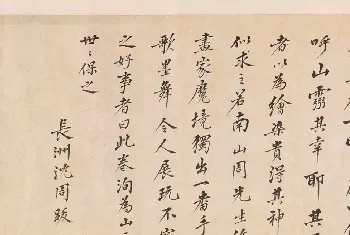 呼山靈其幸耶其
者以為繪染貴得其神
似求主若南山周先生
畫家魔境獨出一番手
歌墨舞令人展玩不
之好事者曰此卷洵為山
世〻保之
長洲沈周跋